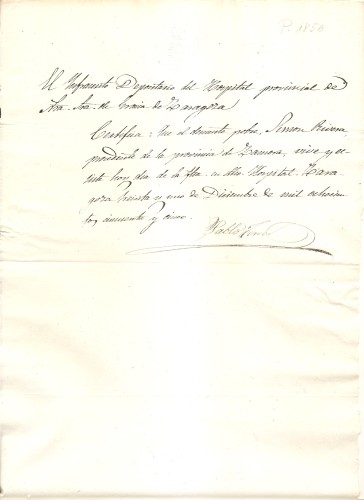 P. 1856
El Infrascrito Depositario del Hospital provincial de
Ntra. Sra. de Gracia de Zaragoza
Certifica: Que el demente pobre, Simon Rivera
procedente de la provincia de Zamora, vive y ec-
siste hoy dia de la fha. en dho Hospital. Zara-
goza treinta y uno de Diciembre de mil ochocien-
tos cincuenta y cinco.
Pablo